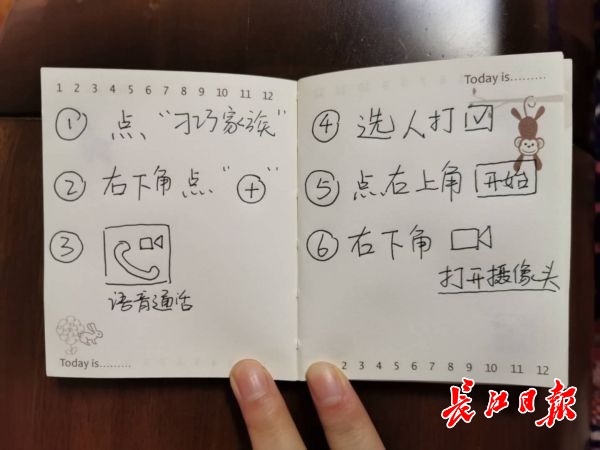 1 2 3 4 5 6 7 8 9 10 11 12
① 点“刁巧家族”
② 右下角点“+”
③
语音通话
Today is.........
Today is.........
④ 选人打☑
⑤ 点右上角 开始
⑥ 右下角
打开摄像头
2 3 4 5 6 7 8 9 10 11 12
长江日报